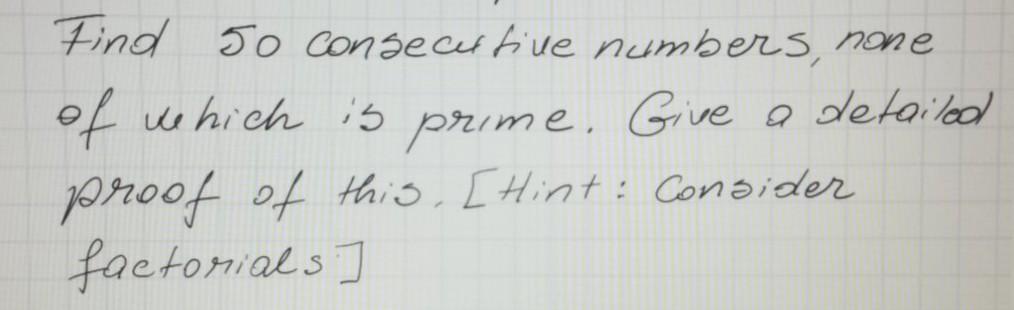 Find 50 consecutive numbers, none
of which is prime. Give a detailed
proof of this. [Hint: Consider
factorials]